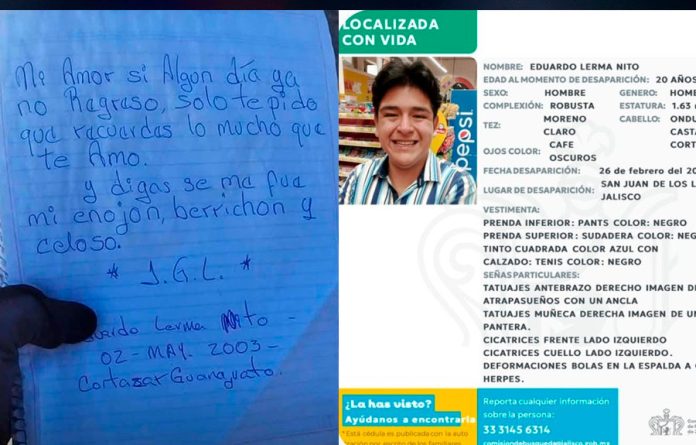 Me Amor si Algun día ya
no Ragraso, solo te pido
que racuerdas lo mucho que
te Amo.
y digas se ma fua
mi enojon, berrichon y
celoso.
* J.G.L. *
Lerma Nito -
02 - MAY. 2003 -
Cortazar Guanajuato.
LOCALIZADA
CON VIDA
pepsi
NOMBRE: EDUARDO LERMA NITO
EDAD AL MOMENTO DE DESAPARICIÓN: 20 AÑOS
SEXO: HOMBRE GENERO: HOMB
COMPLEXIÓN: ROBUSTA ESTATURA: 1.63
TEZ: MORENO CLARO CABELLO: ONDU
CASTA
CORT
OJOS COLOR: CAFE
OSCUROS
FECHA DESAPARICIÓN: 26 de febrero del 20
LUGAR DE DESAPARICIÓN: SAN JUAN DE LOS L
JALISCO
VESTIMENTA:
PRENDA INFERIOR: PANTS COLOR: NEGRO
PRENDA SUPERIOR: SUDADERA COLOR: NEG
TINTO CUADRADA COLOR AZUL CON
CALZADO: TENIS COLOR: NEGRO
SEÑAS PARTICULARES:
TATUAJES ANTEBRAZO DERECHO IMAGEN DE
ATRAPASUEÑOS CON UN ANCLA
TATUAJES MUÑECA DERECHA IMAGEN DE UN
PANTERA.
CICATRICES FRENTE LADO IZQUIERDO
CICATRICES CUELLO LADO IZQUIERDO.
DEFORMACIONES BOLAS EN LA ESPALDA A C
HERPES.
¿La has visto?
Ayúdanos a encontrarla
*Esta cédula es publicada con la auto
Reporta cualquier información
sobre la persona:
33 3145 6314
comisiondebusquedadejalisco.gob.mx